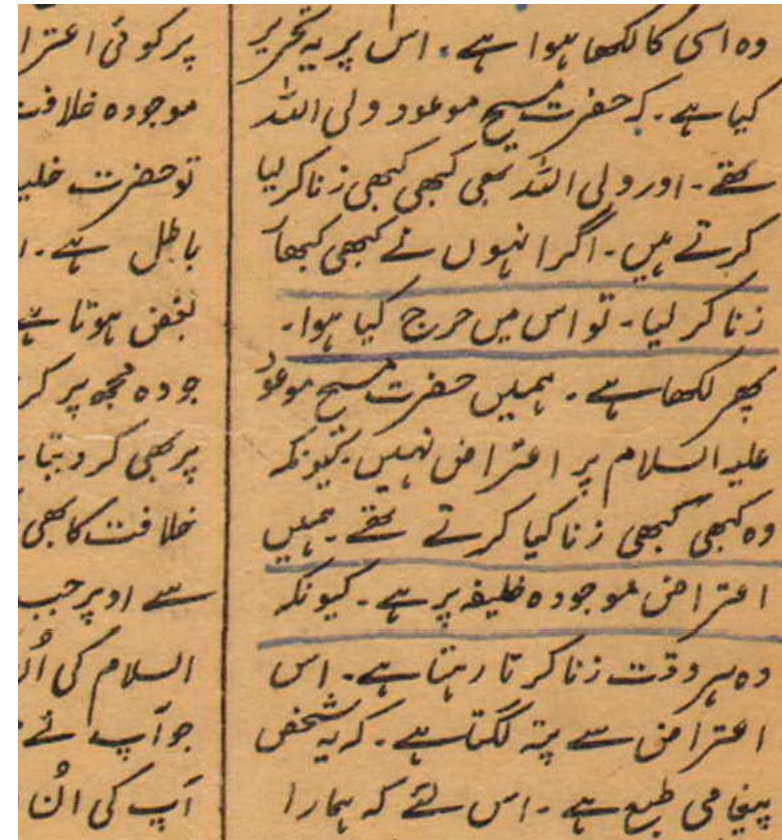 وہ اسی کا لکھا ہوا ہے۔ اس پر یہ تحریر
کیا ہے۔ کہ حضرت مسیح موعود ولی اللہ
تھے۔ اور ولی اللہ بھی کبھی کبھی زنا کر لیا
کرتے ہیں۔ اگر انہوں نے کبھی کبھار
زنا کر لیا۔ تو اس میں حرج کیا ہوا۔
پھر لکھا ہے۔ ہمیں حضرت مسیح موعود
علیہ السلام پر اعتراض نہیں۔ کیونکہ
وہ کبھی کبھی زنا کیا کرتے تھے۔ ہمیں
اعتراض موجودہ خلیفہ پر ہے۔ کیونکہ
وہ ہر وقت زنا کرتا رہتا ہے۔ اس
اعتراض سے پتہ لگتا ہے۔ کہ یہ شخص
پیغامی طبع ہے۔ اس لئے کہ ہمارا
پر کوئی اعترا
موجودہ خلافت
تو حضرت خلیہ
باطل ہے۔ ا
بغض ہوتا ہے
جو وہ مجھ پر کر
پر بھی کر دیتا
خلافت کا بھی
سے اوپر جب
السلام کی اُن
جو آپ نے
آپ کی اُن